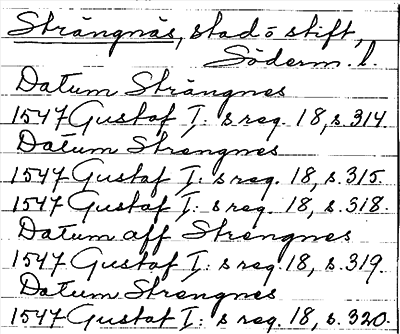 Strängnäs, stad o stift,
Söderm. l.
Datum Strängnes
1547 Gustaf I: s reg. 18, s. 314.
Datum Strengnes
1547 Gustaf I: s reg. 18, s. 315.
1547 Gustaf I: s reg. 18, s. 318.
Datum aff Strengnes
1547 Gustaf I: s reg. 18, s. 319.
Datum Strengnes
1547 Gustaf I: s reg. 18, s. 320.